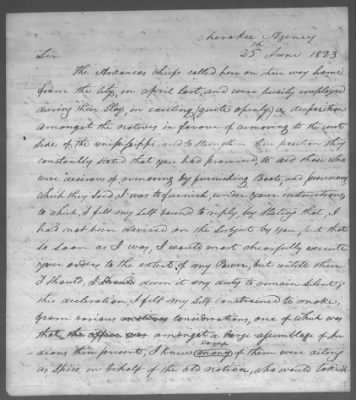 Cherokee Agency
25th June 1823
Sir
The Arkansas Chiefs called here on their way home
from the City, in april last, and were busily employed
during their stay, in exciting (quite openly) a disposition
amongst the natives in favour of removing to the west
side of the mississippi, and to strengthen their position they
constantly stated that you had promised to aid those who
were desirous of removing by furnishing Boats, and provisions
which they said I was to furnish, under your instructions
to which, I felt my self bound to reply by stating that, I
had not been advised on the subject by you, but that
so soon as I was, I would most chearfully execute
your orders to the extent of my Power, but untill then
I should, I should deem it my duty to remain silent;
this declaration, I felt my self constrained to make,
from various considerations, one of which was
that, the officer was amongst a large assemblage of In
dians then present, I knew some many of them were acting
as Spies in behalf of the old nation, who would taken